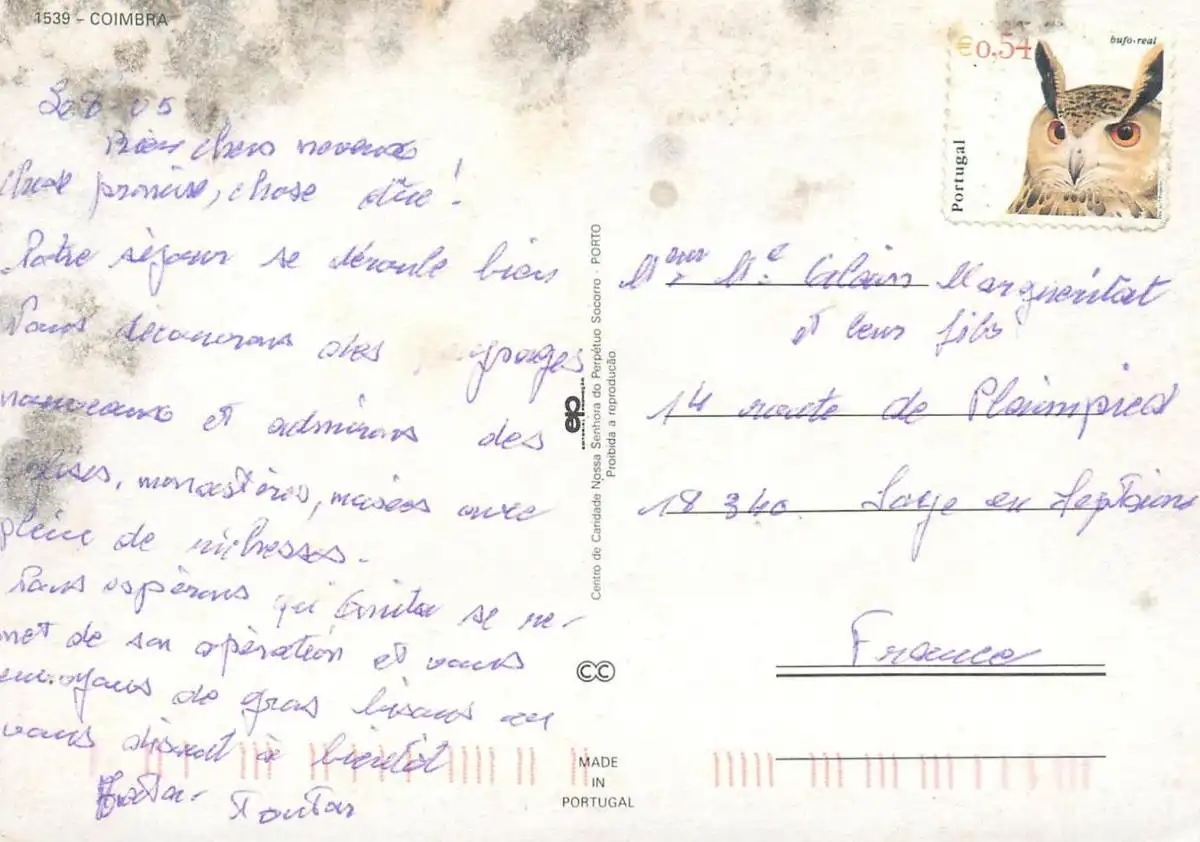 1539 - COIMBRA
Bien chers neveux
chose promise, chose dûe !
Notre séjour se déroule bien
Nous découvrons des paysages
nouveaux et admirons des
églises, monastères, musées avec
plein de richesses.
Nous espérons qu' se re-
met de son opération et vous
envoyons de gros bisous en
vous disant à bientôt
Tonton
€0,54
bufo-real
Portugal
Centro de Caridade Nossa Senhora do Perpétuo Socorro - PORTO
Proibida a reprodução
MADE
IN
PORTUGAL
Alain Marguéritat
et leur fils
14 route de Plaimpied
18 340 Soye en Septaine
France